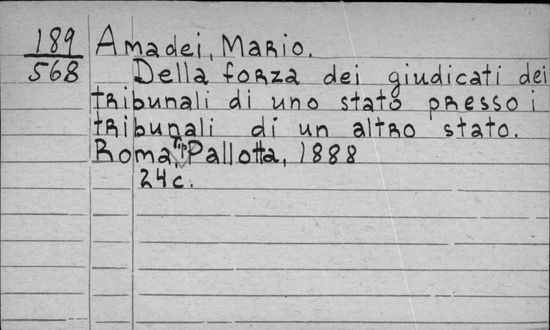 189
568
Amadei, Mario.
Della forza dei giudicati dei
tribunali di uno stato presso i
tribunali di un altro stato.
Roma, Pallotta, 1888
24c.